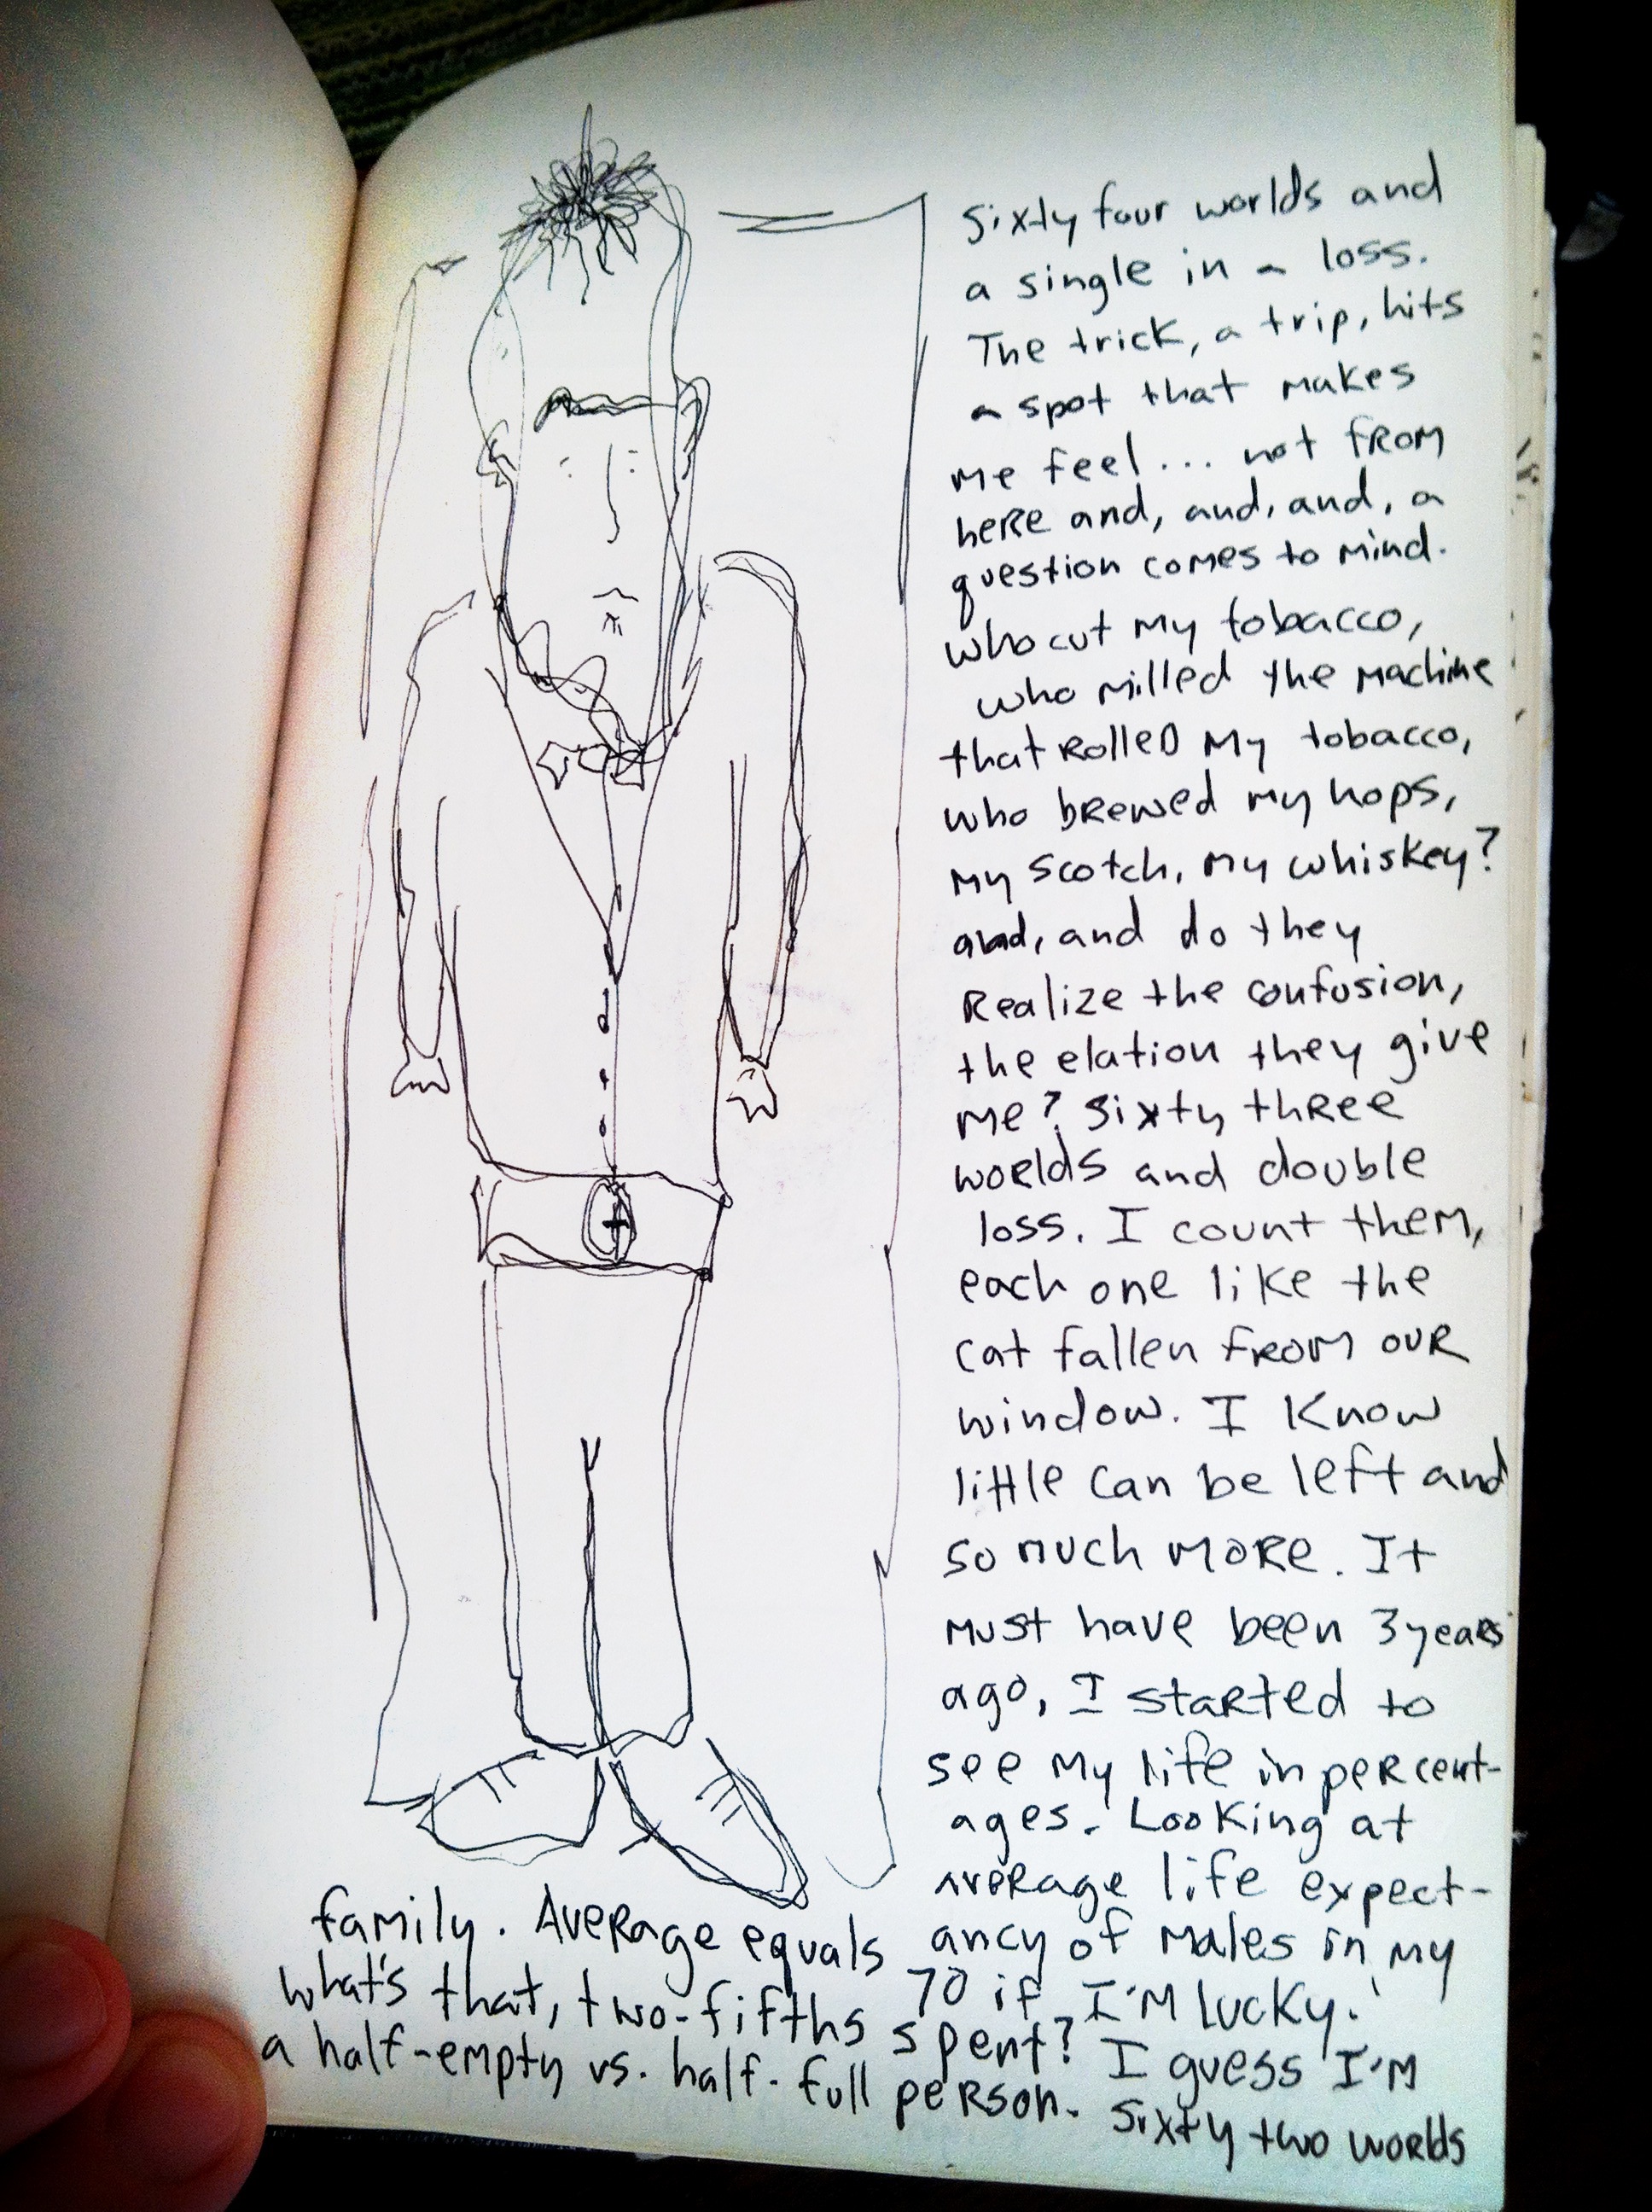 sixty four worlds and
a single in a loss.
The trick, a trip, hits
a spot that makes
me feel... not from
here and, and, and, a
question comes to mind.
who cut my tobacco,
who milled the machine
that rolled my tobacco,
who brewed my hops,
my scotch, my whiskey?
and, and do they
Realize the confusion,
the elation they give
me? Sixty three
worlds and double
loss. I count them,
each one like the
cat fallen from our
window. I know
little can be left and
so much more. It
must have been 3 years
ago, I started to
see my life in percent-
ages. Looking at
average life expect-
ancy of males in my
family. Average equals
70 if I'm lucky.
what's that, two-fifths spent? I guess I'm
a half-empty vs. half-full person. Sixty two worlds